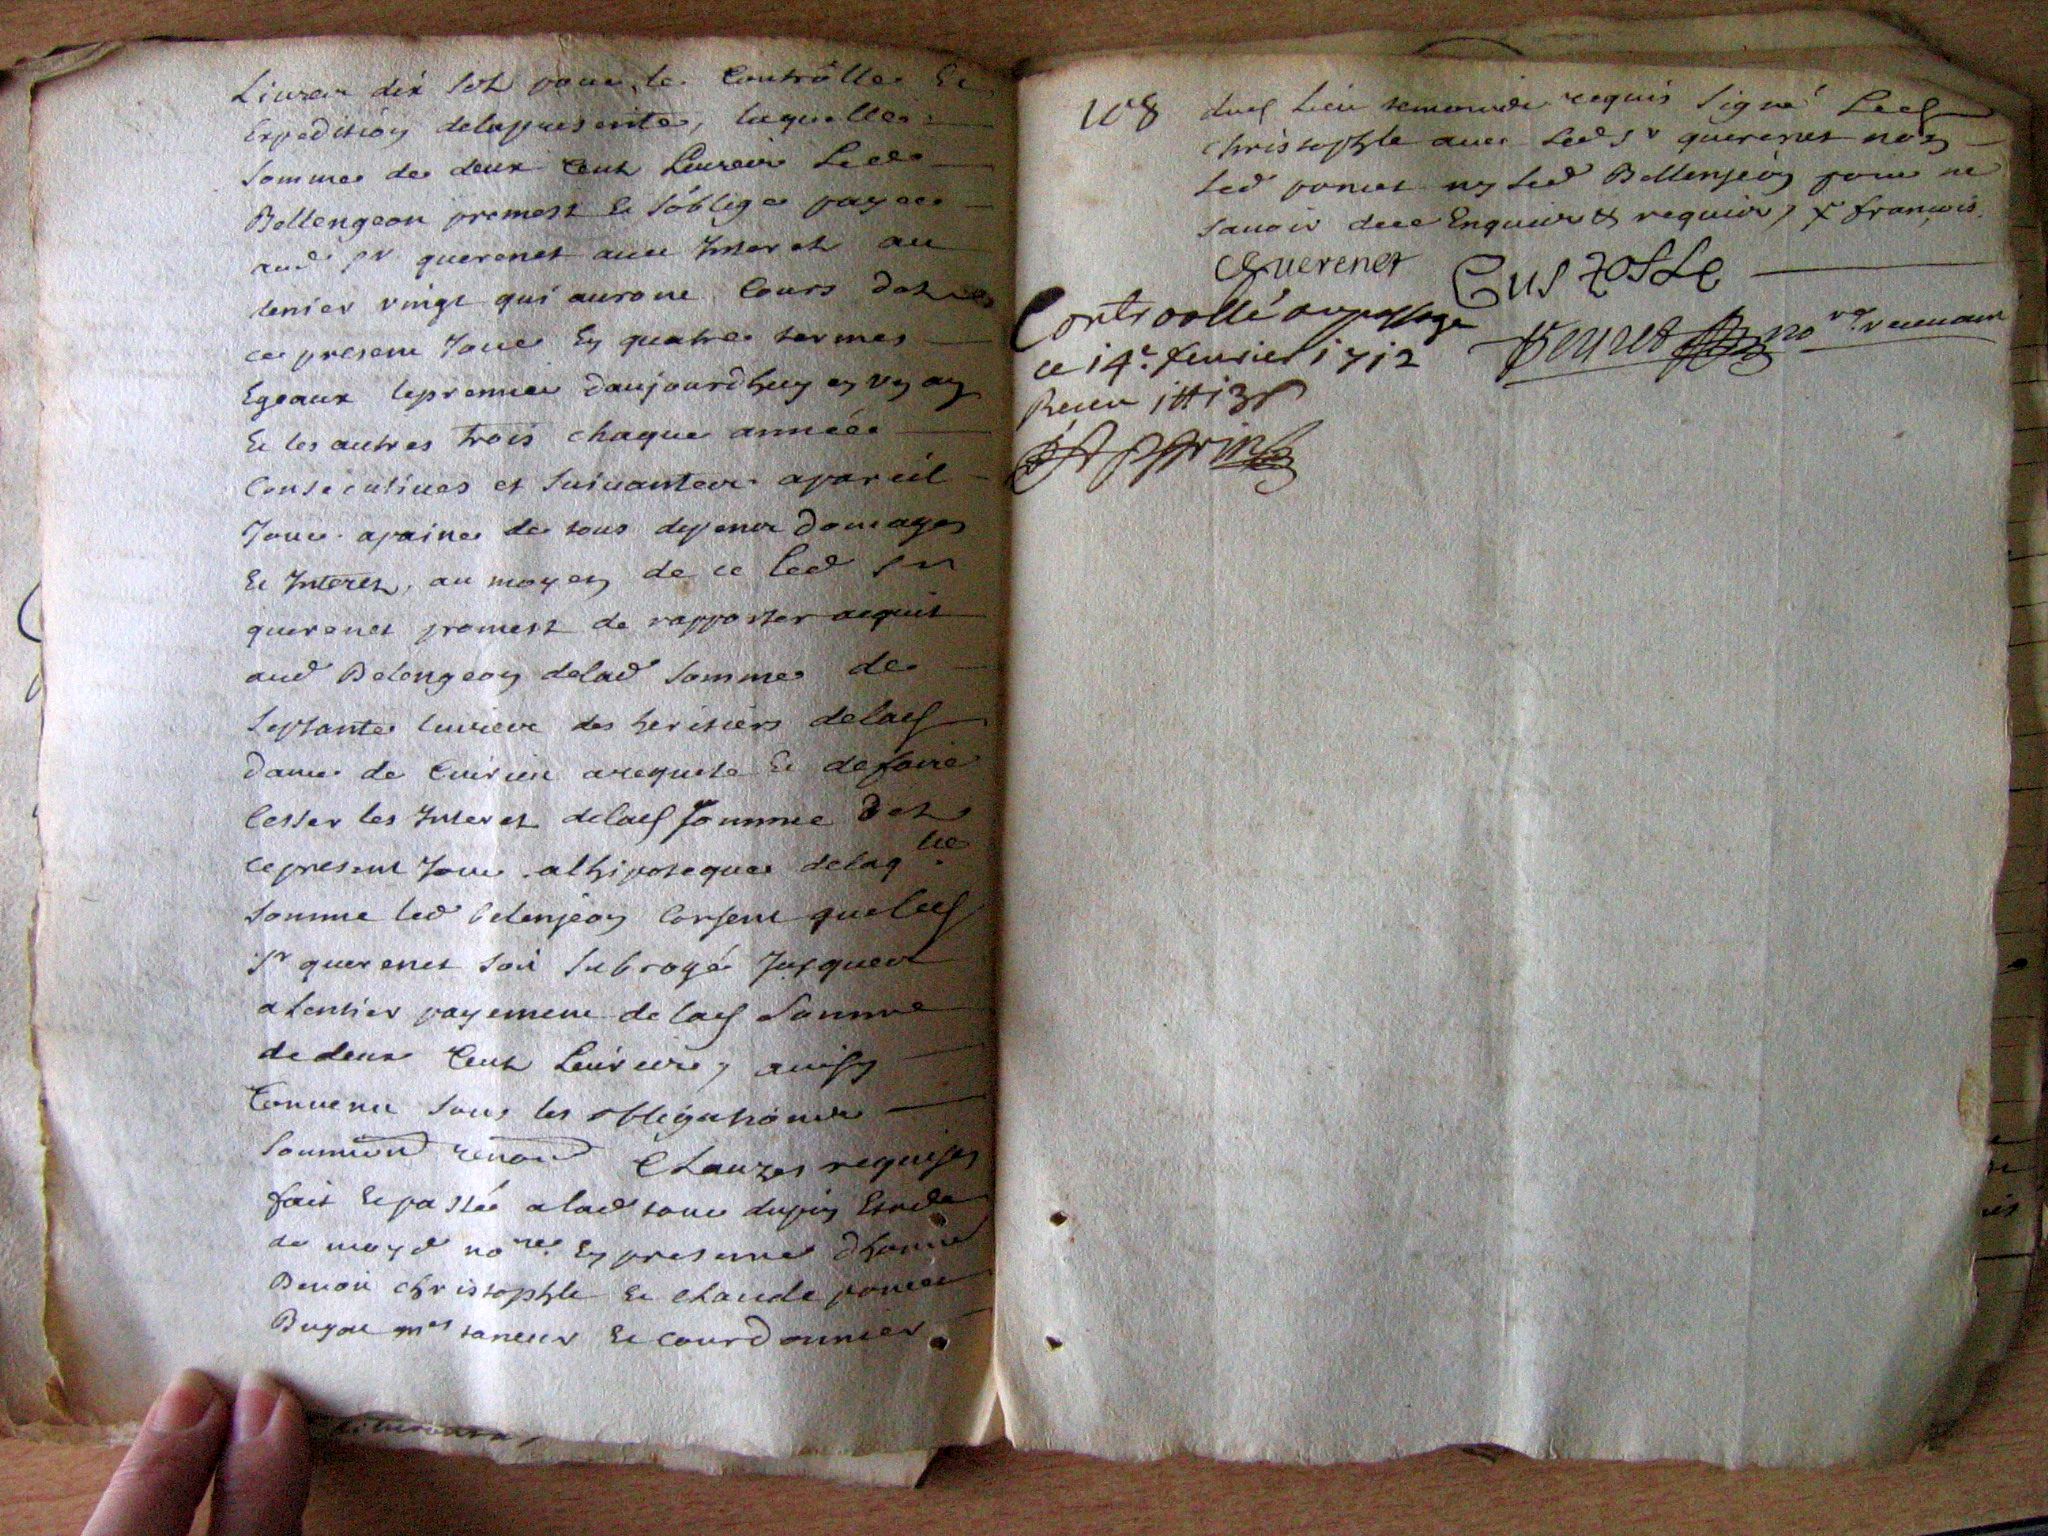 Livres dix sols pour le Controlle Et
Expedition delapresente, laquelle
somme de deux Cent Livres Led
Bellengeon promest Et s'oblige payer
aud Sr querenet avec Interest au
denier vingt qui auront Cours des
ce present Jour En quatre termes
Egeaux lepremier daujourdhuy en un an
Et les autres trois chaque année
Consecutives et suivantes apareil
Jour apaine de tous depens domages
Et Interest, au moyen de ce led Sr
querenet promest de rapporter acquit
aud Belengeon delad somme de
septante livres des heritiers delad
dame de arequete Et defaire
Cesser les Interest delad somme des
cepresent Jour alhipoteque delaq lle
somme led belenjeon Consent queled
Sr querenet soit subrogé Jusques
alentier payement delad somme
dedeux Cent Livres, ainsy
Convenu sous les obligations
soumions renon Clauzes requises
fait Et passé alad tour dupin Etude
de moyd nore En presence dhonne
Benoit christophle Et claude poncet
Buyat mes taneur Et Courdonnier
108 dud Lieu temoins requis signé Led
christophle avec led Sr querenet non
led poncet ny led Bellenjeon pour ne
savoir dece Enquis & requis, f françois
Querenet CristofLe
Controollé aupassage
ce 14e fevrier 1712
Receu